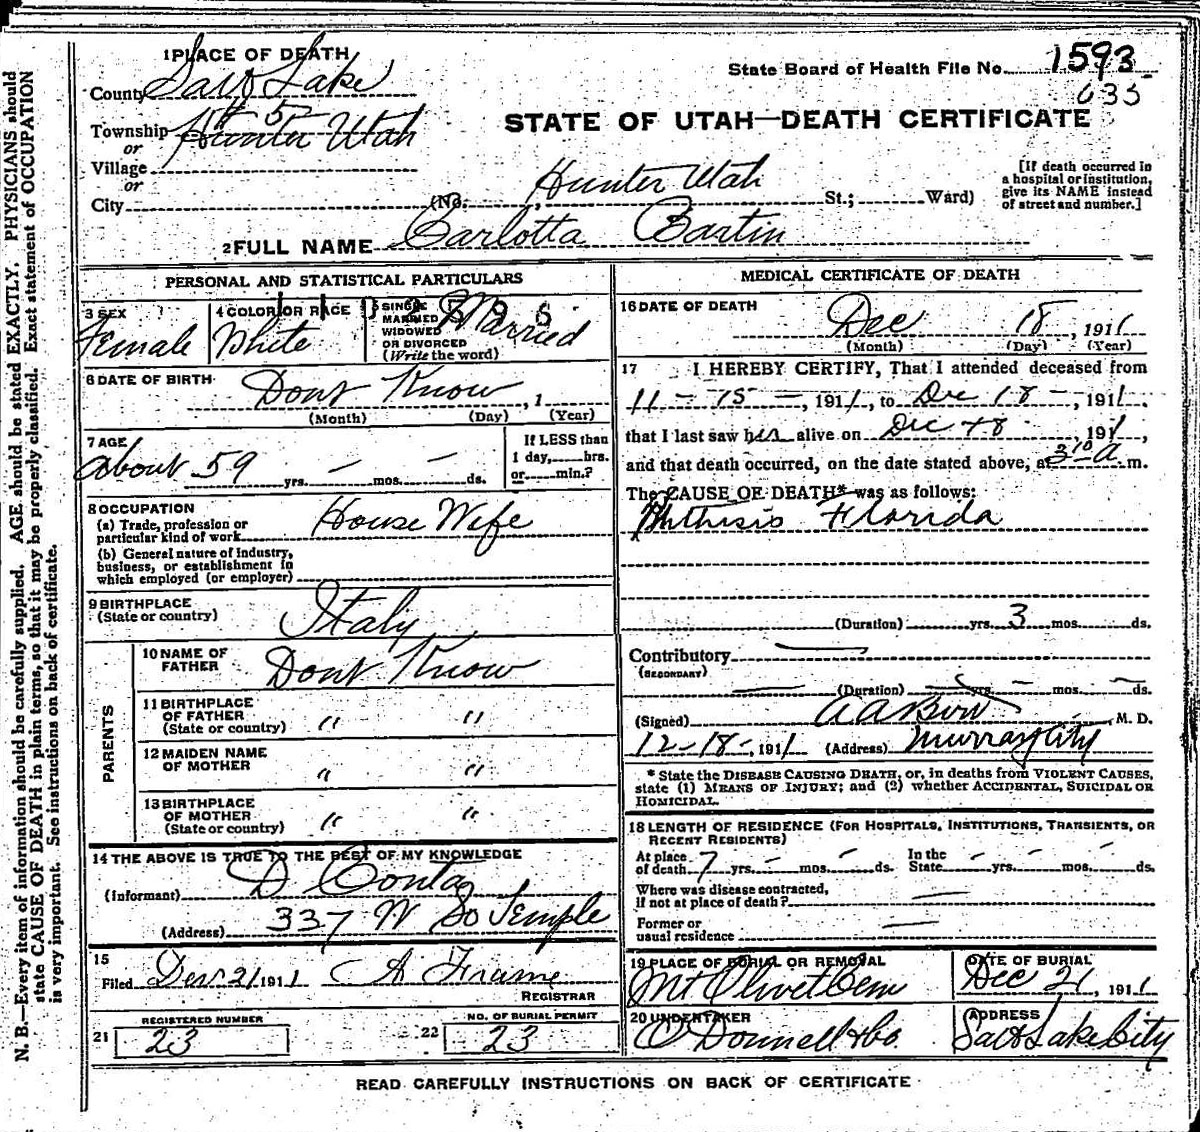 1 PLACE OF DEATH
State Board of Health File No. 1593
County Salt Lake
035
# 5
STATE OF UTAH—DEATH CERTIFICATE
Township Hunter Utah
or
Village
or
[If death occurred in
a hospital or institution,
give its NAME instead
of street and number.]
City (No. Hunter Utah St.; Ward)
2 FULL NAME Carlotta Bastin
PERSONAL AND STATISTICAL PARTICULARS
3 SEX Female
4 COLOR OR RACE White
5 SINGLE
MARRIED
WIDOWED
OR DIVORCED
(Write the word) Married
6 DATE OF BIRTH Dont Know, 1
(Month) (Day) (Year)
7 AGE
about 59 yrs. — mos. — ds.
If LESS than
1 day, hrs.
or min.?
8 OCCUPATION
(a) Trade, profession or
particular kind of work House Wife
(b) General nature of industry,
business, or establishment in
which employed (or employer)
9 BIRTHPLACE
(State or country) Italy
PARENTS
10 NAME OF
FATHER Dont Know
11 BIRTHPLACE
OF FATHER
(State or country) " "
12 MAIDEN NAME
OF MOTHER " "
13 BIRTHPLACE
OF MOTHER
(State or country) " "
14 THE ABOVE IS TRUE TO THE BEST OF MY KNOWLEDGE
(Informant) D Conta
(Address) 337 W So Temple
15
Filed Dec 21 1911 A Frame
REGISTRAR
21 REGISTERED NUMBER 23
22 NO. OF BURIAL PERMIT 23
MEDICAL CERTIFICATE OF DEATH
16 DATE OF DEATH
Dec 18, 1911
(Month) (Day) (Year)
17 I HEREBY CERTIFY, That I attended deceased from
11 - 15 -, 1911, to Dec 18 -, 1911,
that I last saw her alive on Dec 18, 1911,
and that death occurred, on the date stated above, at 3 10 A m.
The CAUSE OF DEATH* was as follows:
Phthisis Florida
(Duration) yrs. 3 mos. ds.
Contributory —
(SECONDARY)
— (Duration) — yrs. — mos. — ds.
(Signed) M. D.
12-18-, 1911 (Address) Murray City
* State the DISEASE CAUSING DEATH, or, in deaths from VIOLENT CAUSES,
state (1) MEANS OF INJURY; and (2) whether ACCIDENTAL, SUICIDAL OR
HOMICIDAL.
18 LENGTH OF RESIDENCE (FOR HOSPITALS, INSTITUTIONS, TRANSIENTS, OR
RECENT RESIDENTS)
At place
of death 7 yrs. — mos. — ds.
In the
State — yrs. — mos. — ds.
Where was disease contracted,
if not at place of death? —
Former or
usual residence —
19 PLACE OF BURIAL OR REMOVAL
Mt Olivet Cem
DATE OF BURIAL
Dec 21, 1911
20 UNDERTAKER
O'Donnell & Co.
ADDRESS
Salt Lake City
READ CAREFULLY INSTRUCTIONS ON BACK OF CERTIFICATE
N. B.—Every item of information should be carefully supplied. AGE should be stated EXACTLY. PHYSICIANS should
state CAUSE OF DEATH in plain terms, so that it may be properly classified. Exact statement of OCCUPATION
is very important. See instructions on back of certificate.